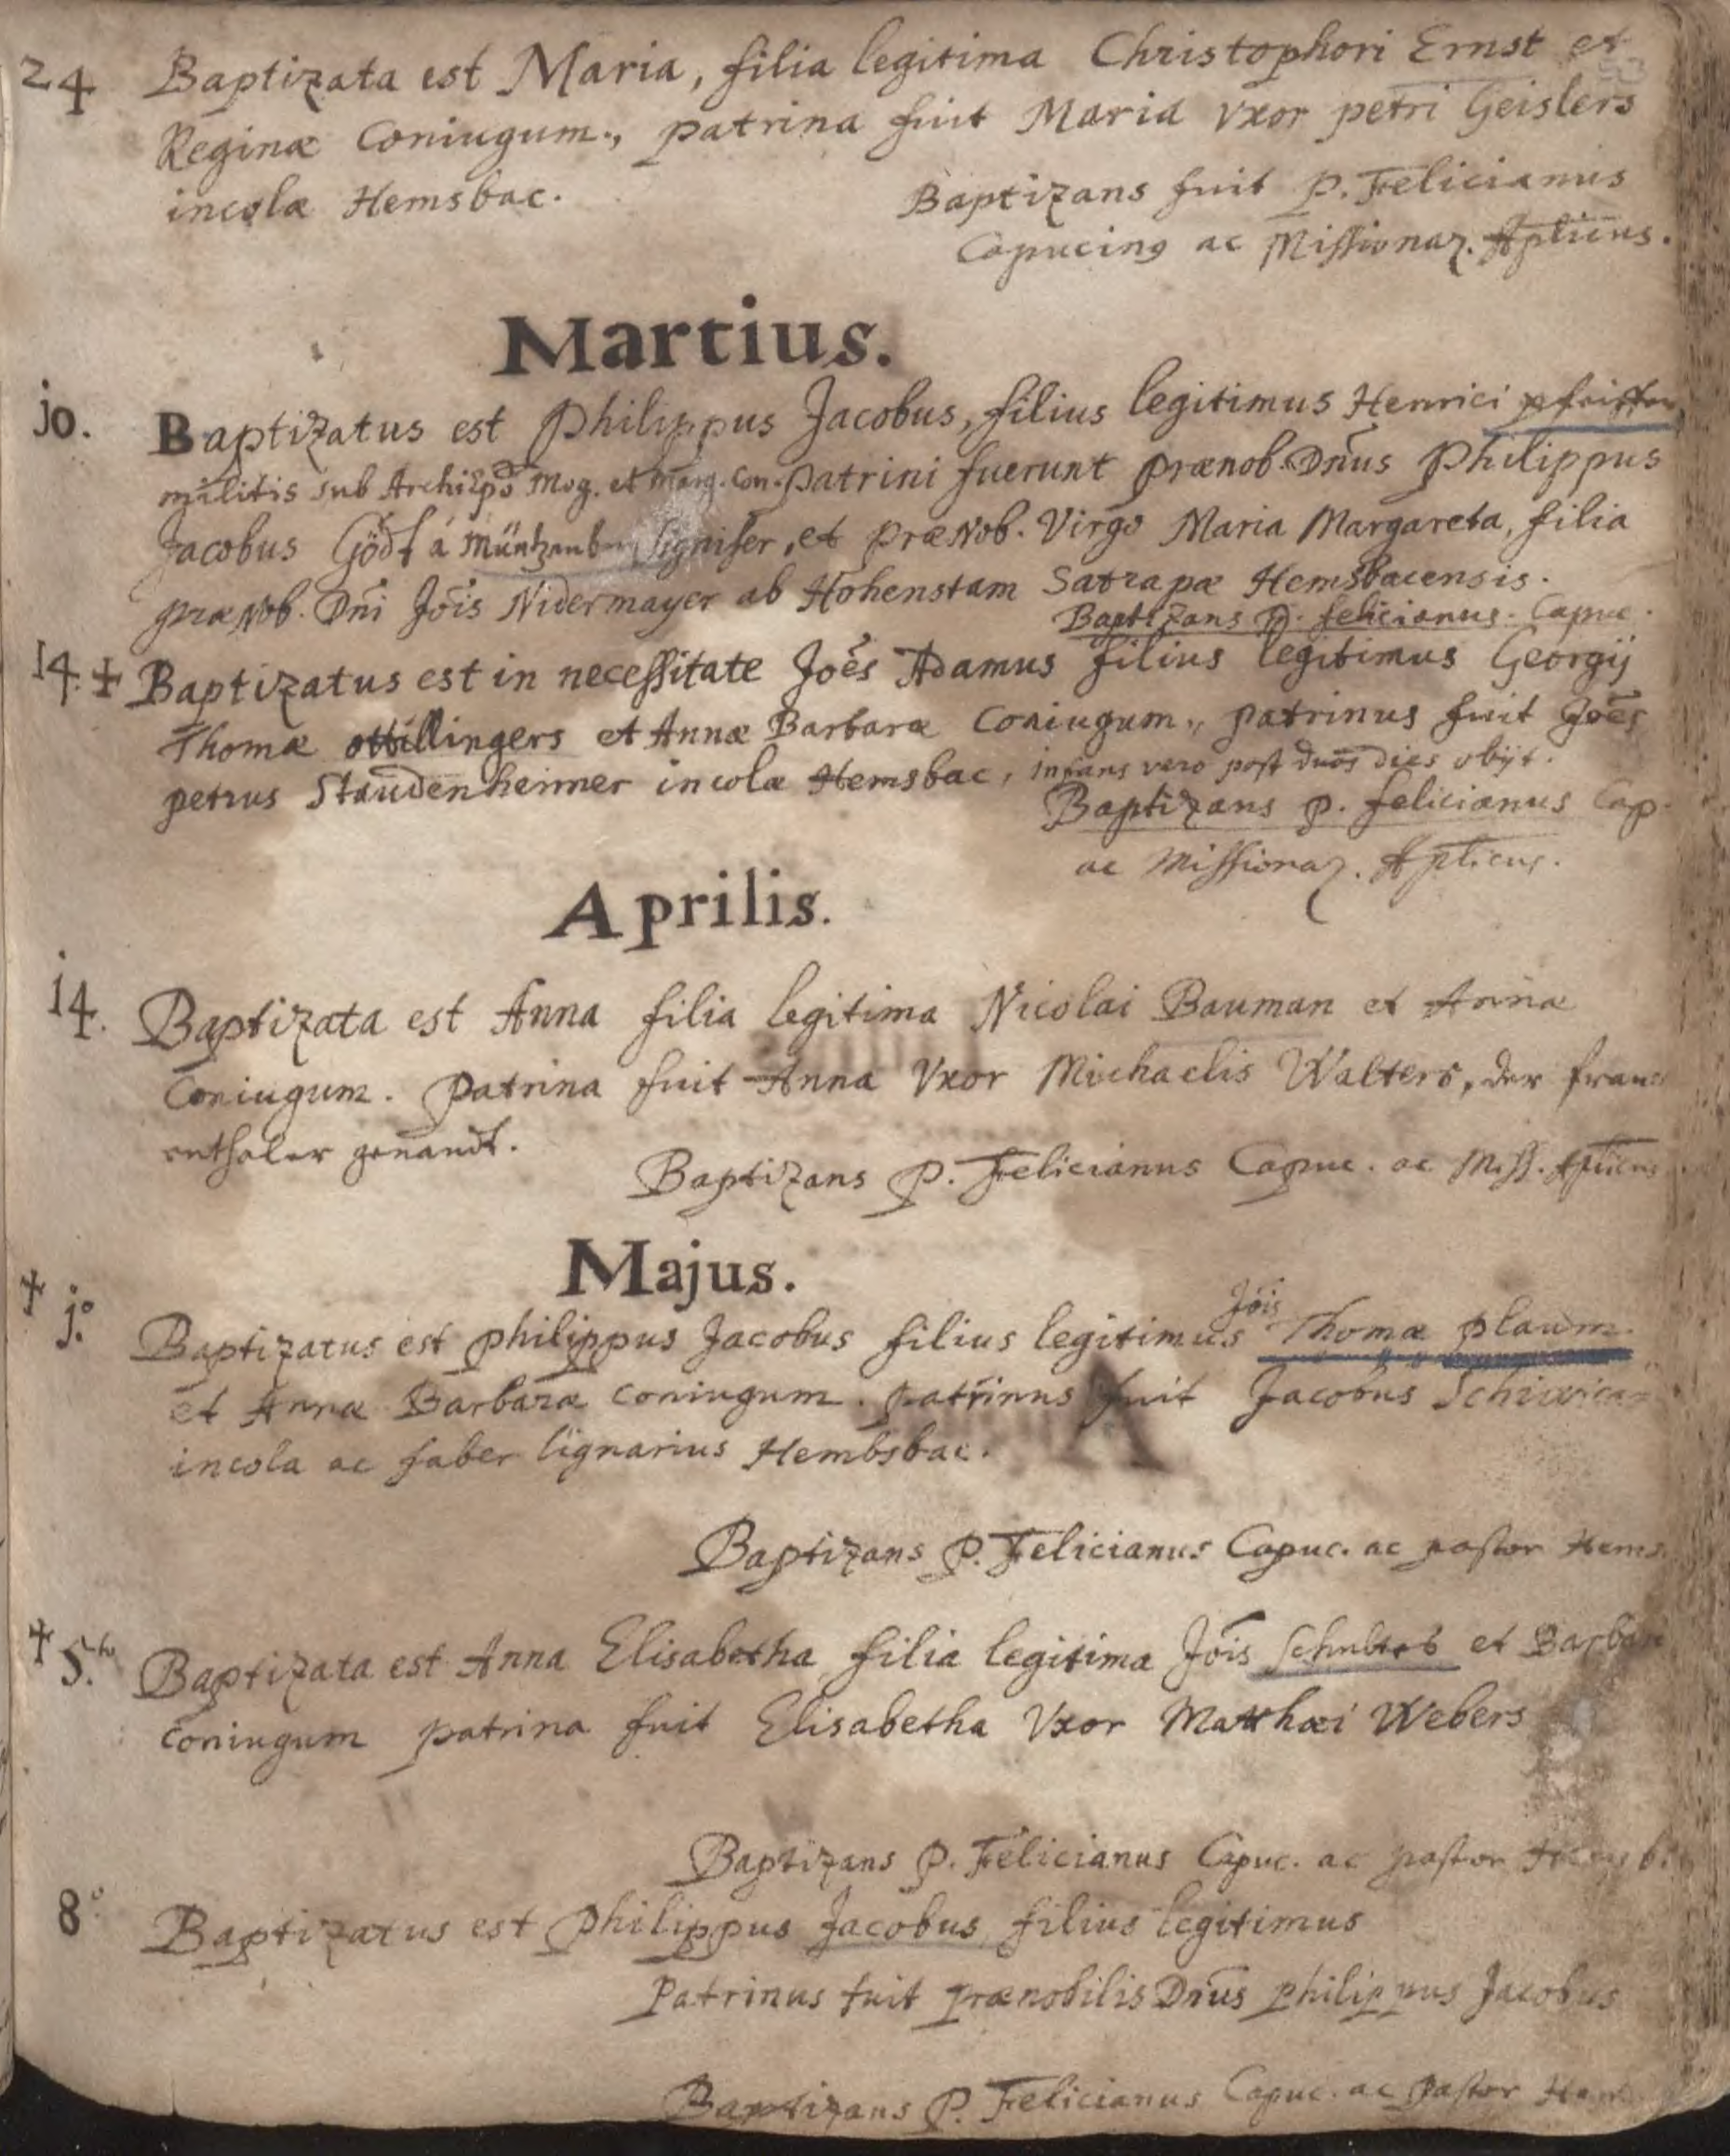 24 Baptizata est Maria, filia legitima Christophori Ernst et
Reginæ Coniugum., patrina fuit Maria Vxor petri Geislers
incolæ Hemsbac.
Baptizans fuit P. Felicianus
Capucin9 ac Missionar. Aplicus.
Martius.
jo. Baptizatus est Philippus Jacobus, filius legitimus Henrici
militis sub Archiepo Mog. et Marg. Con. Patrini fuerunt prænob. Dn̄us Philippus
Jacobus á signifer, et prænob. Virgo Maria Margareta, filia
prænob. Dn̄i Jōis Nidermayer ab Hohenstam Satrapæ Hemsbacensis.
Baptizans P. felicianus. Capuc.
14. ‡ Baptizatus est in necessitate Joēs Adamus filius legitimus Georgij
Thomæ ottillingers et Annæ Barbaræ Coniugum., patrinus fuit Joēs
petrus Staudenheimer incolæ Hemsbac, infans vero post duos dies obijt.
Baptizans p. felicianus Cap.
ac Missionar. Aplicus.
Aprilis.
i4. Baptizata est Anna filia legitima Nicolai Bauman et Annæ
Coniugum. Patrina fuit Anna Vxor Michaelis Walters, der franc
enthaler genandt.
Baptizans P. Felicianus Capuc. ac Miss. Aplicus
Majus.
† j.o Jōis
Baptizatus est philippus Jacobus filius legitimus Thomæ plaum
et Annæ Barbaræ coniugum. patrinus fuit Jacobus
incola ac faber lignarius Hembsbac.
Baptizans P. Felicianus Capuc. ac pastor Hems.
† 5.to Baptizata est Anna Elisabetha filia legitima Jōis et Barbaræ
coniugum patrina fuit Elisabetha Vxor Matthæi Webers
Baptizans P. Felicianus Capuc. ac pastor Hemsb.
8o Baptizatus est Philippus Jacobus filius legitimus
Patrinus fuit prænobilis Dn̄us philippus Jacobus
Baptizans P. Felicianus Capuc. ac pastor Hem